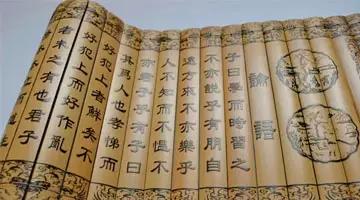 論語
子曰學而時習之
不亦說乎有朋自
遠方來不亦樂乎
人不知而不慍不
亦君子乎有子曰
其爲人也孝悌而
好犯上者鮮矣不
好犯上而好作亂
者未之有也君子